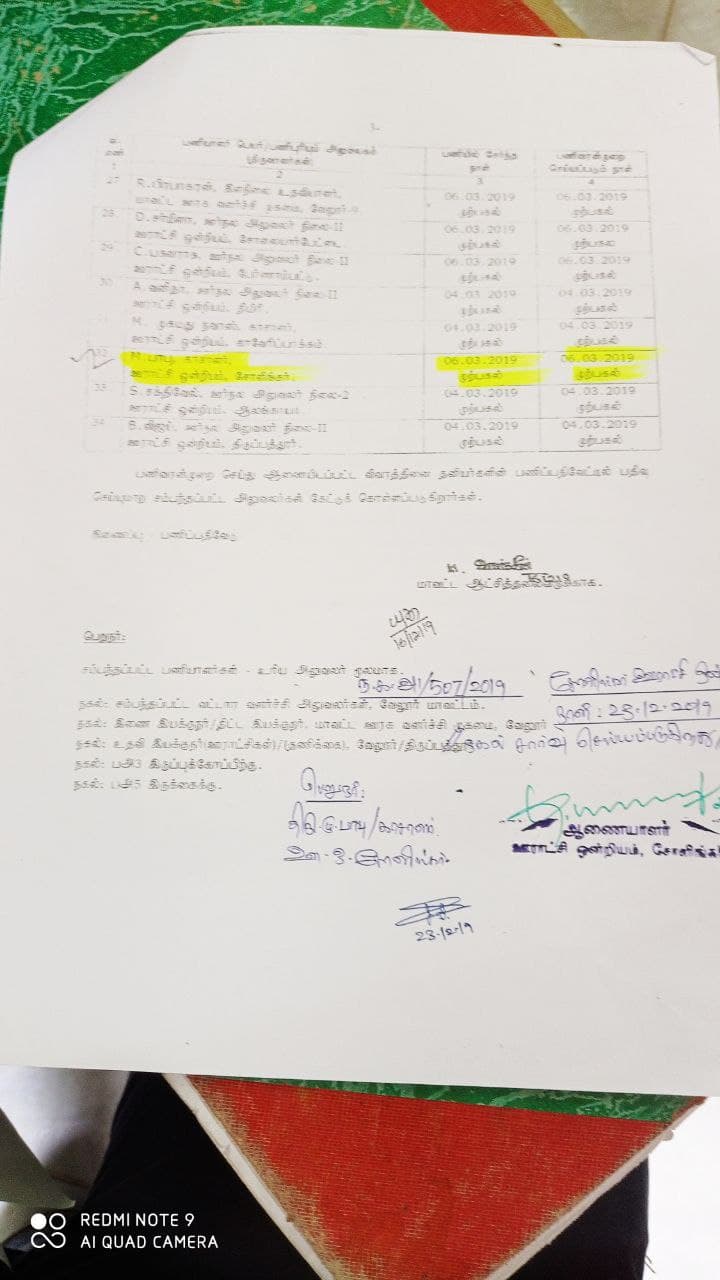 பணியாளர் பெயர்/பணிபுரியும் அலுவலகம்
பணியில் சேர்ந்த நாள்
பணிவரன்முறை செய்யப்படும் நாள்
1 2 3 4
27 R.பிரபாகரன், இளநிலை உதவியாளர், 06.03.2019 06.03.2019
மாவட்ட ஊரக வளர்ச்சி முகமை, வேலூர்-9 முற்பகல் முற்பகல்
28 D.சர்மிளா, ஊர்நல அலுவலர் நிலை-II 06.03.2019 06.03.2019
ஊராட்சி ஒன்றியம், சோலையார்பேட்டை முற்பகல் முற்பகல்
29 C.பகவராசு, ஊர்நல அலுவலர் நிலை-II 06.03.2019 06.03.2019
ஊராட்சி ஒன்றியம், பேர்ணாம்பட்டு. முற்பகல் முற்பகல்
30 A.வனிதா, ஊர்நல அலுவலர் நிலை-II 04.03.2019 04.03.2019
ஊராட்சி ஒன்றியம், திமிரி. முற்பகல் முற்பகல்
M. முகமது நவாஸ், காசாளர், 04.03.2019 04.03.2019
ஊராட்சி ஒன்றியம், காவேரிப்பாக்கம். முற்பகல் முற்பகல்
32 M.பாபு, காசாளர், 06.03.2019 06.03.2019
ஊராட்சி ஒன்றியம், சோளிங்கர். முற்பகல் முற்பகல்
33 S.சக்திவேல், ஊர்நல அலுவலர் நிலை-2 04.03.2019 04.03.2019
ஊராட்சி ஒன்றியம், ஆலங்காயம். முற்பகல் முற்பகல்
34 B.விஜய், ஊர்நல அலுவலர் நிலை-II 04.03.2019 04.03.2019
ஊராட்சி ஒன்றியம், திருப்பத்தூர். முற்பகல் முற்பகல்
பணிவரன்முறை செய்து ஆணையிடப்பட்ட விவரத்தினை தனியர்களின் பணிப்பதிவேட்டில் பதிவு
செய்யுமாறு சம்பந்தப்பட்ட அலுவலர்கள் கேட்டுக் கொள்ளப்படுகிறார்கள்.
இணைப்பு : பணிப்பதிவேடு
மாவட்ட ஆட்சித்தலைவருக்காக.
16/12/19
பெறுநர்:
சம்பந்தப்பட்ட பணியாளர்கள் - உரிய அலுவலர் மூலமாக.
ந.க.அ1/507/2019 சோளிங்கர் ஊராட்சி ஒன்
நகல்: சம்பந்தப்பட்ட வட்டார வளர்ச்சி அலுவலர்கள், வேலூர் மாவட்டம்.
நாள் : 23-12-2019
நகல்: இணை இயக்குநர்/திட்ட இயக்குநர், மாவட்ட ஊரக வளர்ச்சி முகமை, வேலூர்
நகல்: உதவி இயக்குநர்(ஊராட்சிகள்)/(தணிக்கை), வேலூர்/திருப்பத்தூர்
நகல் சார்வு செய்யப்படுகிறது
நகல்: பஅ3 இருப்புக்கோப்பிற்கு.
நகல்: பஅ5 இருக்கைக்கு.
பெறுநர்:
திரு.மு.பாபு/காசாளர்
ஊ.ஒ.சோளிங்கர்.
ஆணையாளர்
ஊராட்சி ஒன்றியம், சோளிங்க
23-12-19
REDMI NOTE 9
AI QUAD CAMERA